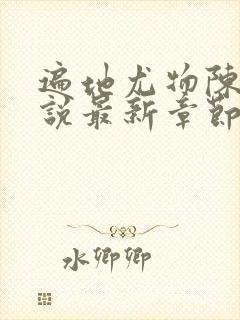 遍地尤物陈
說最新章節
水卿卿